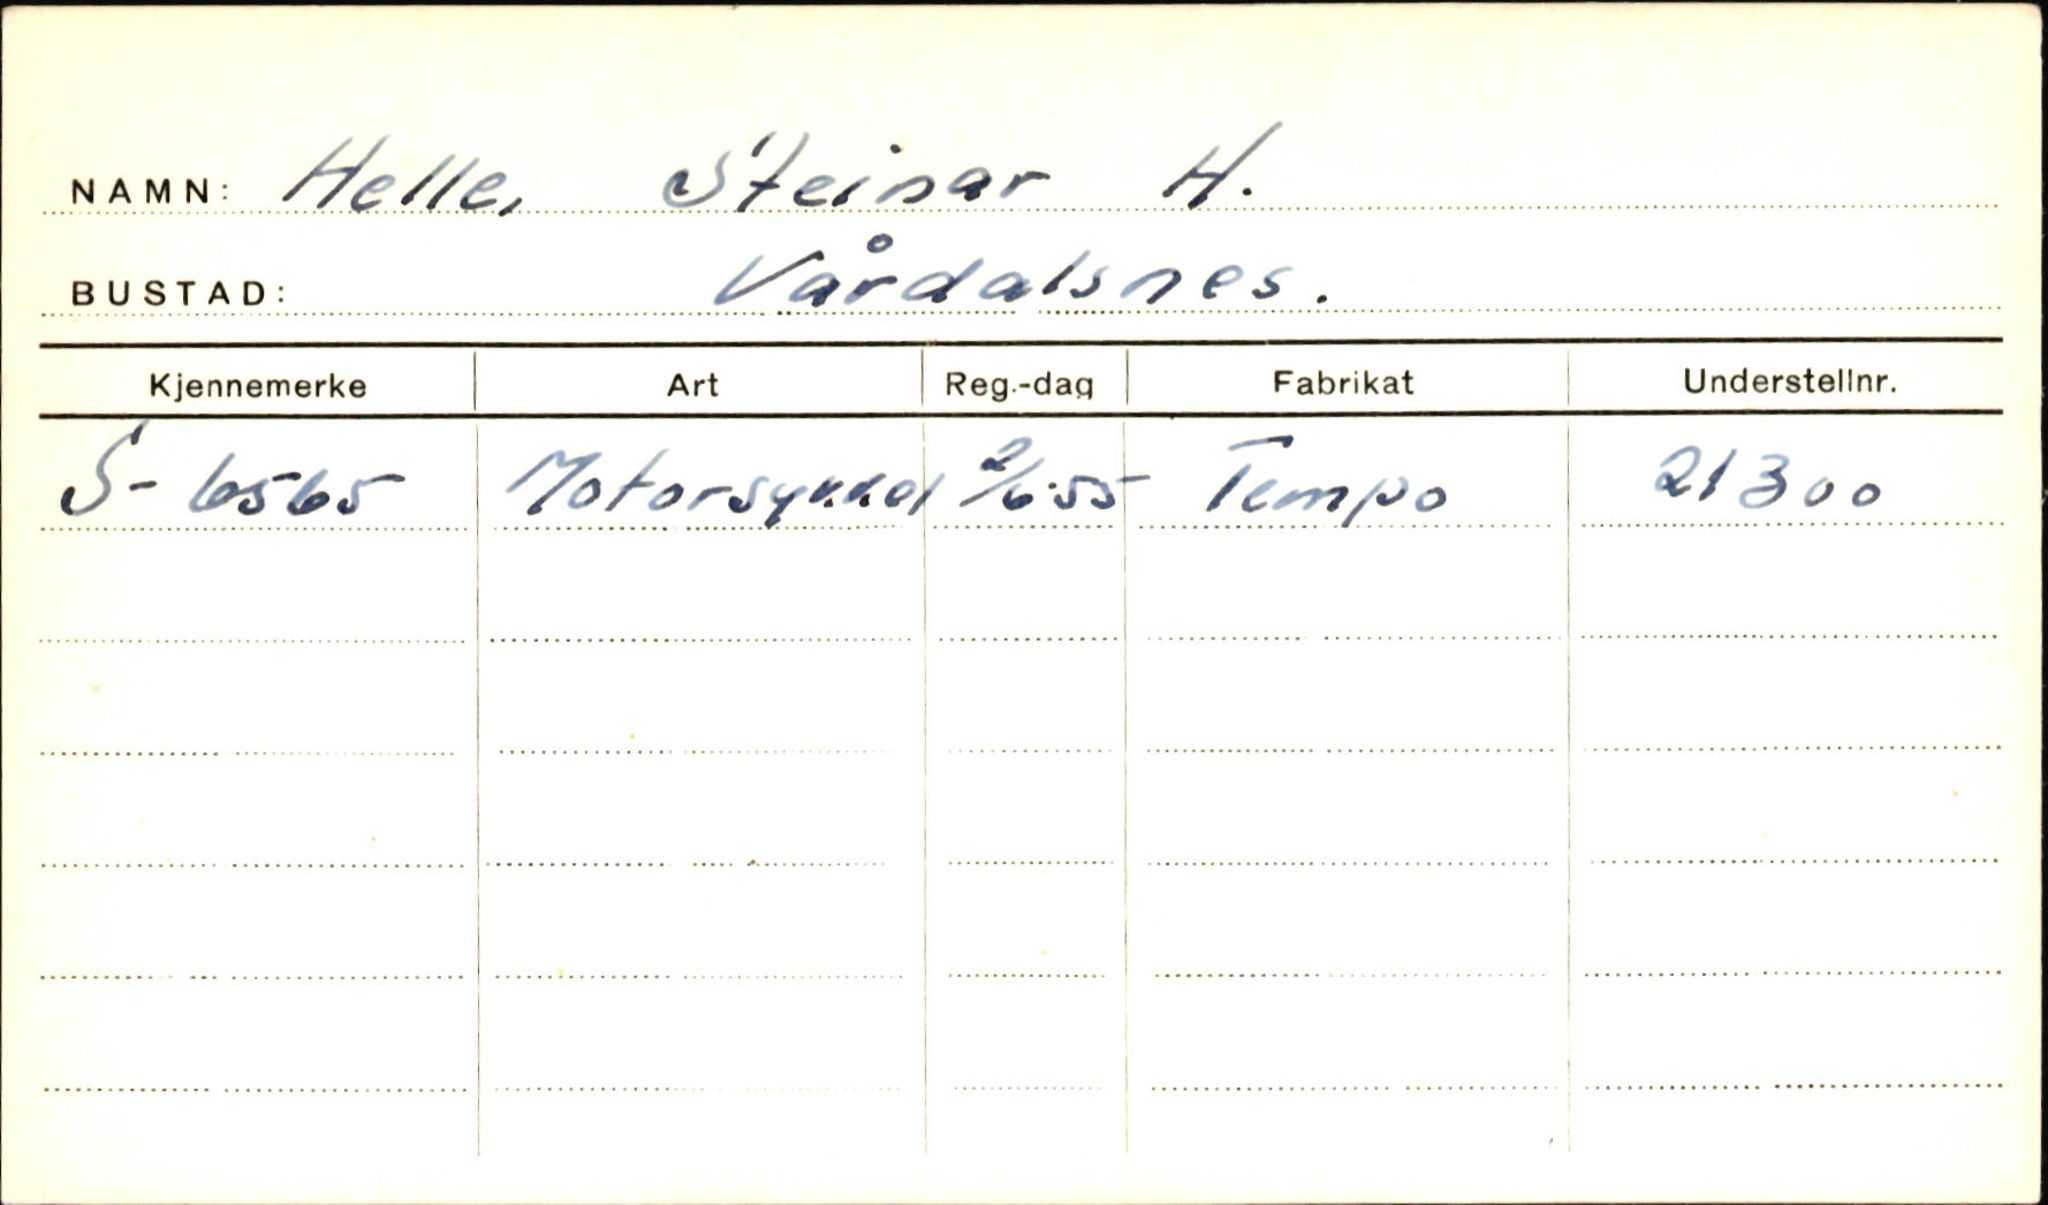 NAMN: Helle, Steinar H.
BUSTAD: Vårdalsnes.
Kjennemerke Art Reg.-dag Fabrikat Understellnr.
S-6565 Motorsykkel 2/6-55 Tempo 21300